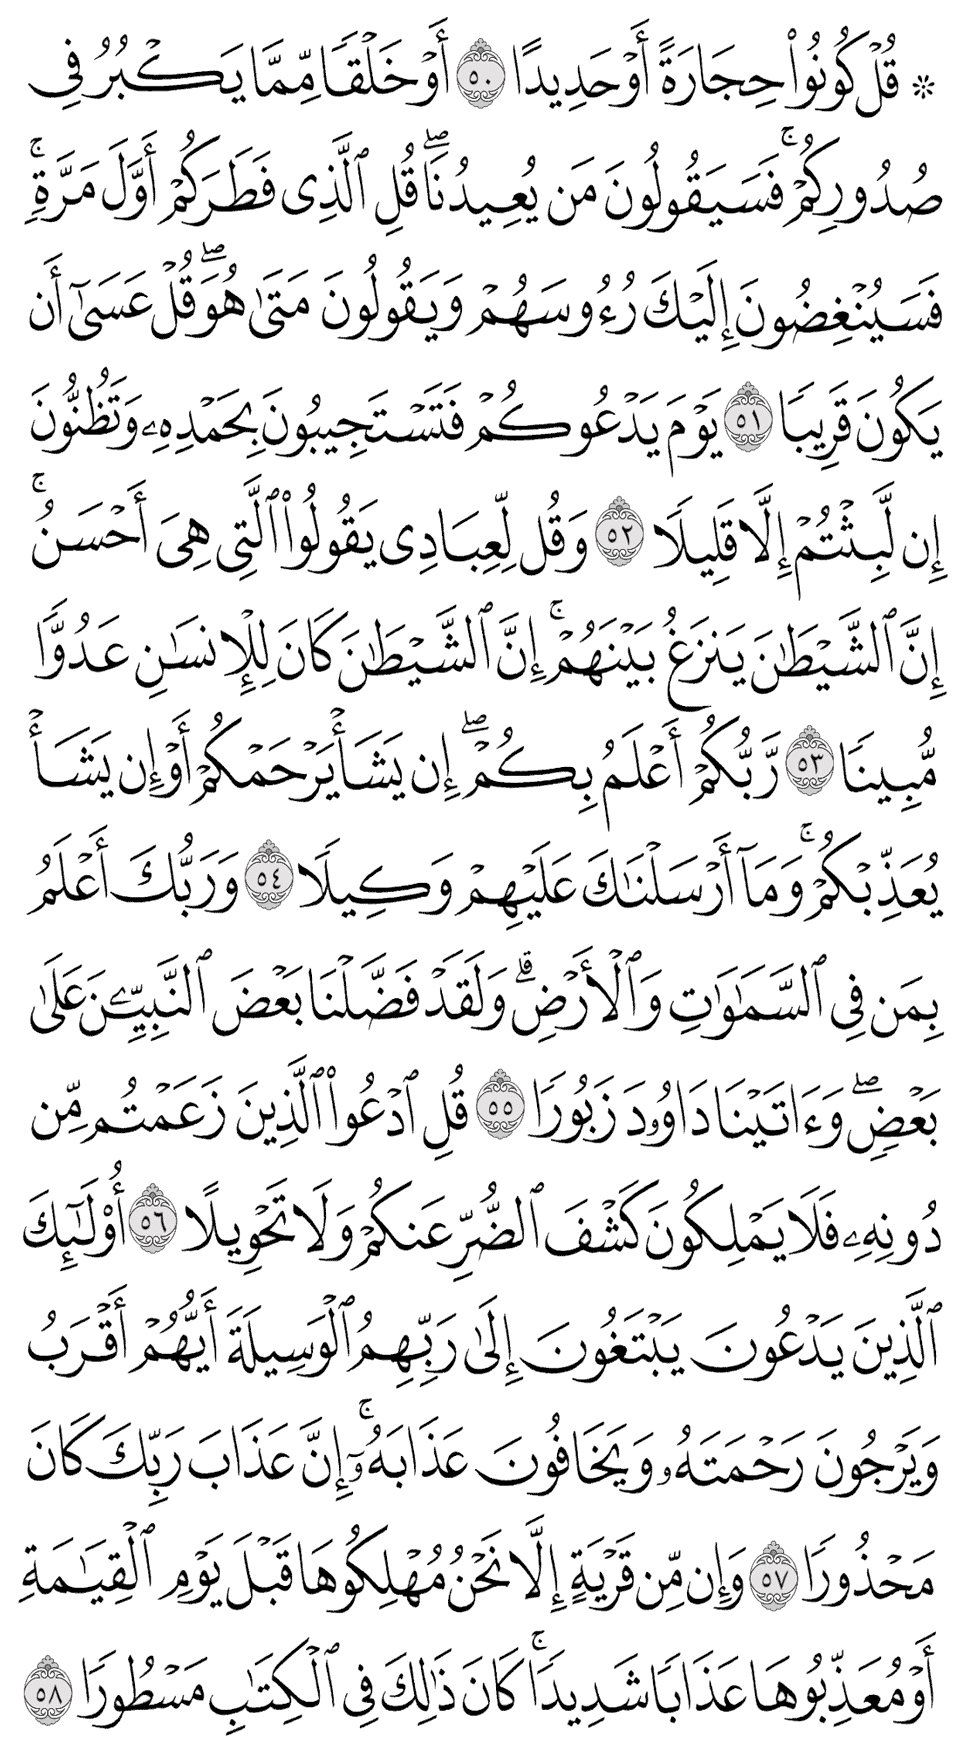 ۞ قُلۡ كُونُواْ حِجَارَةً أَوۡ حَدِيدًا ٥٠ أَوۡ خَلۡقٗا مِّمَّا يَكۡبُرُ فِي
صُدُورِكُمۡۚ فَسَيَقُولُونَ مَن يُعِيدُنَاۖ قُلِ ٱلَّذِي فَطَرَكُمۡ أَوَّلَ مَرَّةٖۚ
فَسَيُنۡغِضُونَ إِلَيۡكَ رُءُوسَهُمۡ وَيَقُولُونَ مَتَىٰ هُوَۖ قُلۡ عَسَىٰٓ أَن
يَكُونَ قَرِيبٗا ٥١ يَوۡمَ يَدۡعُوكُمۡ فَتَسۡتَجِيبُونَ بِحَمۡدِهِۦ وَتَظُنُّونَ
إِن لَّبِثۡتُمۡ إِلَّا قَلِيلٗا ٥٢ وَقُل لِّعِبَادِي يَقُولُواْ ٱلَّتِي هِيَ أَحۡسَنُۚ
إِنَّ ٱلشَّيۡطَٰنَ يَنزَغُ بَيۡنَهُمۡۚ إِنَّ ٱلشَّيۡطَٰنَ كَانَ لِلۡإِنسَٰنِ عَدُوّٗا
مُّبِينٗا ٥٣ رَّبُّكُمۡ أَعۡلَمُ بِكُمۡۖ إِن يَشَأۡ يَرۡحَمۡكُمۡ أَوۡ إِن يَشَأۡ
يُعَذِّبۡكُمۡۚ وَمَآ أَرۡسَلۡنَٰكَ عَلَيۡهِمۡ وَكِيلٗا ٥٤ وَرَبُّكَ أَعۡلَمُ
بِمَن فِي ٱلسَّمَٰوَٰتِ وَٱلۡأَرۡضِۗ وَلَقَدۡ فَضَّلۡنَا بَعۡضَ ٱلنَّبِيِّـۧنَ عَلَىٰ
بَعۡضٖۖ وَءَاتَيۡنَا دَاوُۥدَ زَبُورٗا ٥٥ قُلِ ٱدۡعُواْ ٱلَّذِينَ زَعَمۡتُم مِّن
دُونِهِۦ فَلَا يَمۡلِكُونَ كَشۡفَ ٱلضُّرِّ عَنكُمۡ وَلَا تَحۡوِيلًا ٥٦ أُوْلَٰٓئِكَ
ٱلَّذِينَ يَدۡعُونَ يَبۡتَغُونَ إِلَىٰ رَبِّهِمُ ٱلۡوَسِيلَةَ أَيُّهُمۡ أَقۡرَبُ
وَيَرۡجُونَ رَحۡمَتَهُۥ وَيَخَافُونَ عَذَابَهُۥٓۚ إِنَّ عَذَابَ رَبِّكَ كَانَ
مَحۡذُورٗا ٥٧ وَإِن مِّن قَرۡيَةٍ إِلَّا نَحۡنُ مُهۡلِكُوهَا قَبۡلَ يَوۡمِ ٱلۡقِيَٰمَةِ
أَوۡ مُعَذِّبُوهَا عَذَابٗا شَدِيدٗاۚ كَانَ ذَٰلِكَ فِي ٱلۡكِتَٰبِ مَسۡطُورٗا ٥٨